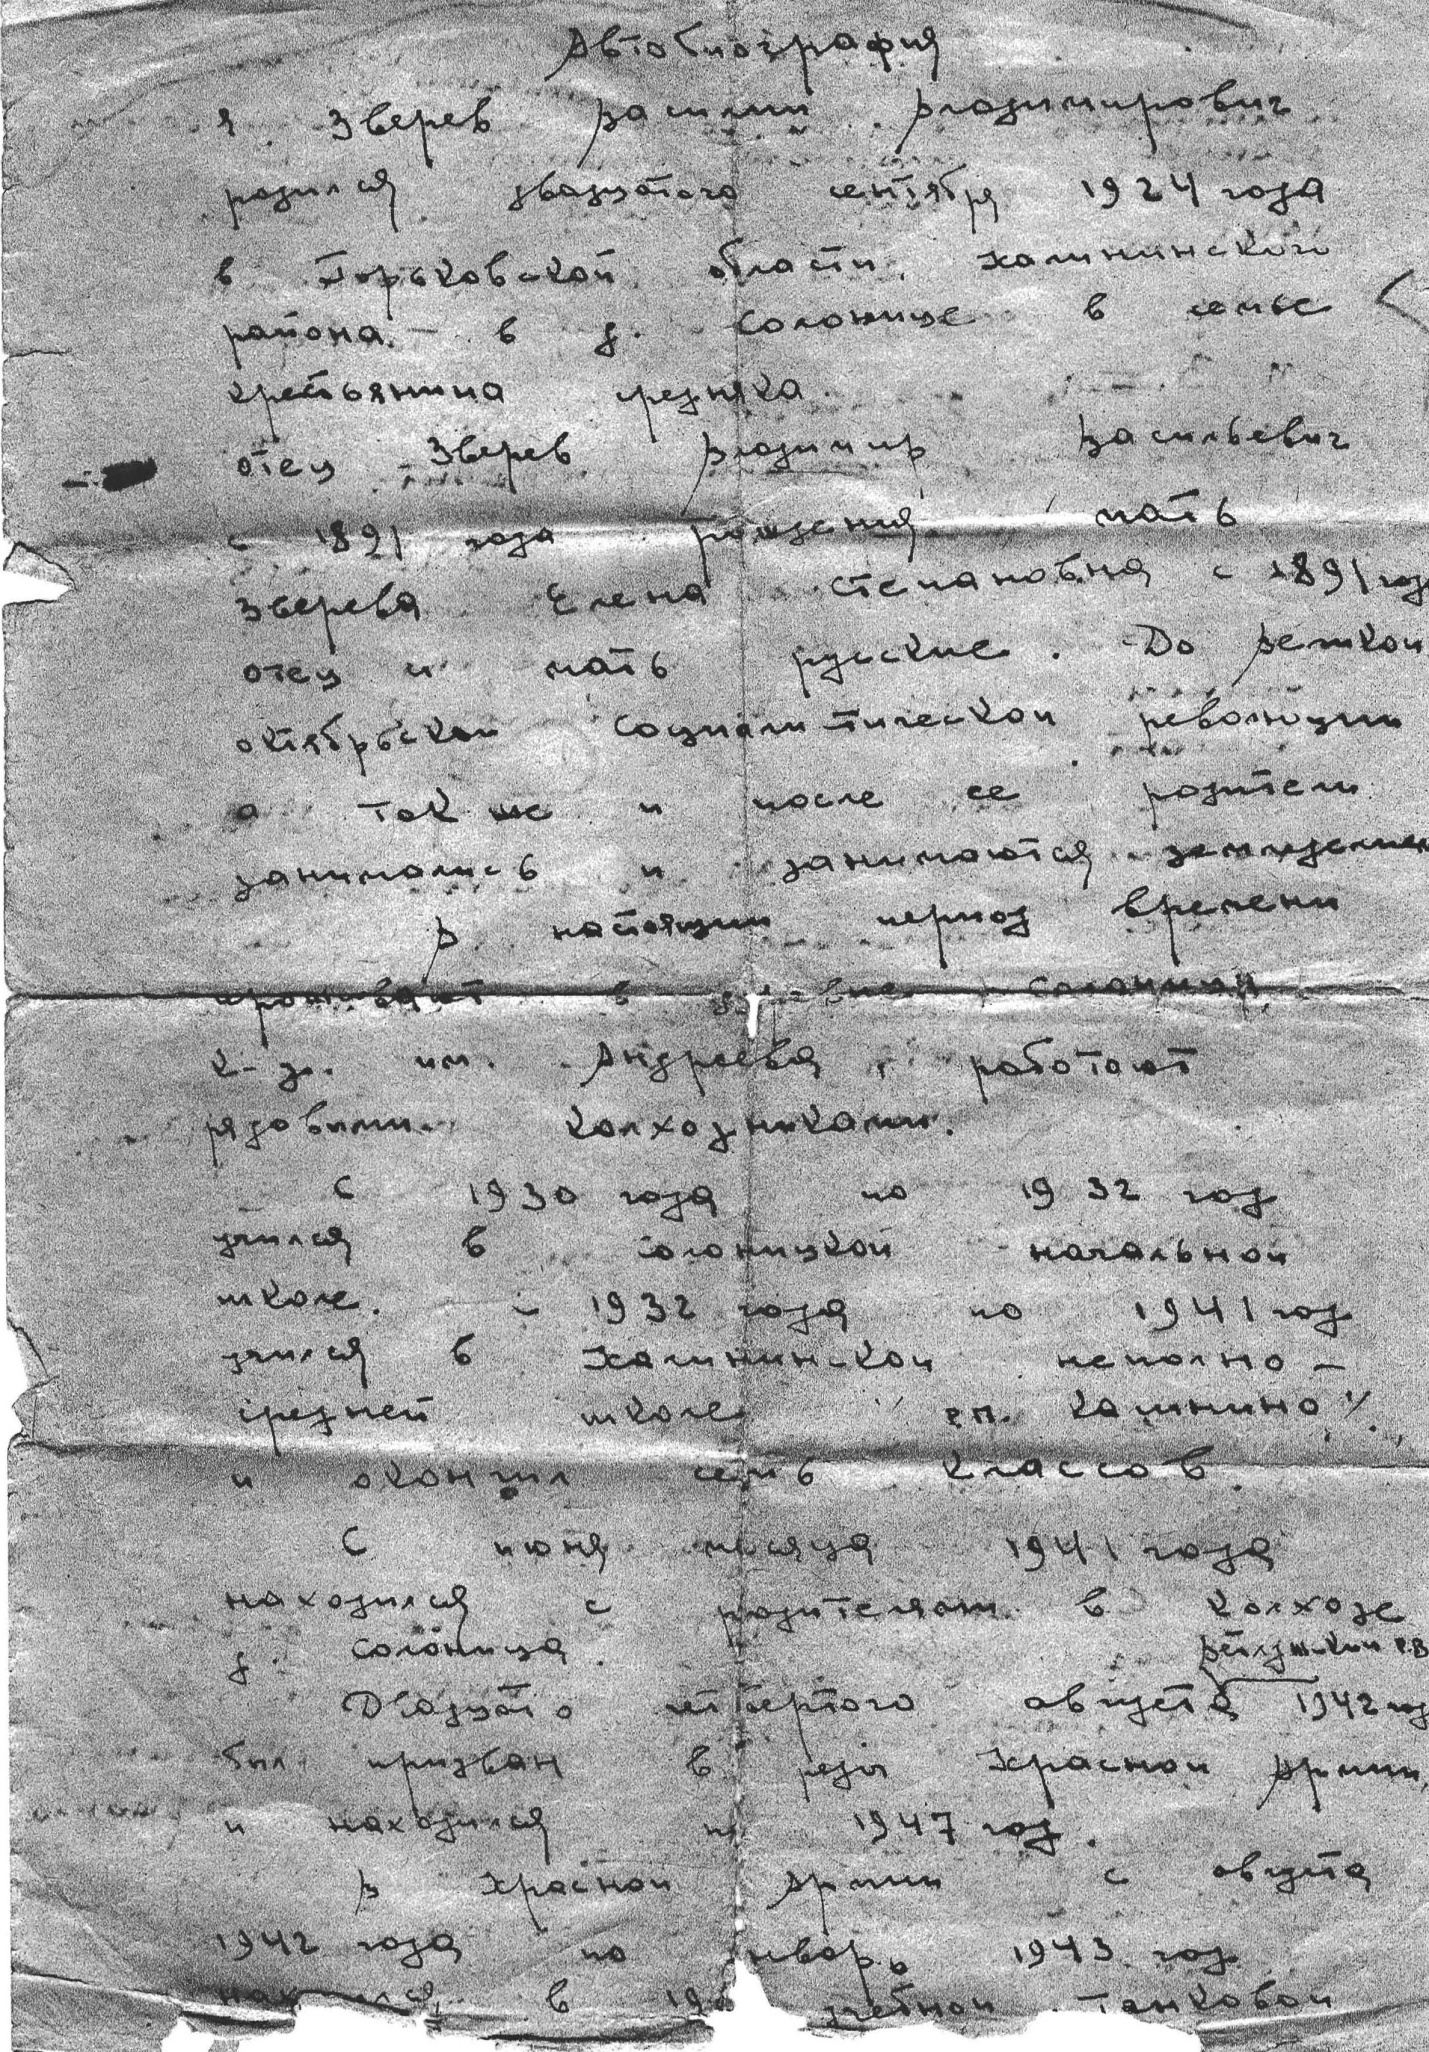 Автобиография
я Зверев Василий Владимирович
родился двадцатого сентября 1924 года
в Горьковской области, Калининского
района. в д. Солонице в семье
крестьянина средняка.
отец Зверев Владимир Васильевич
с 1891 года рождения мать
Зверева Елена Степановна с 1891 год
отец и мать русские. До Великой
октябрьской социалистической революции
а так же и после ее родители
занимались и занимаются земледелием
В настоящии период времени
проживают в деревне Солоница
к-з. им. Андреева, работают
рядовыми колхозниками.
С 1930 года по 1932 год
учился в Солоницкой начальной
школе. с 1932 года по 1941 год
учился в Калининской неполно-
средней школе р.п. Калинино"
и окончил семь классов
С июня месяца 1941 года
находился с родителями в колхозе
д. Солоница.
Ветлужский Р.В
Двадцать четвертого августа 1942 год
был призван в ряды Красной Армии,
и находился по 1947 год.
В Красной Армии с августа
1942 года по январь 1943 год
в учебной танковой